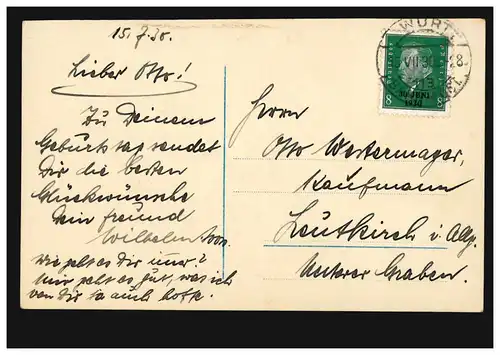 15.7.30.
Lieber Otto!
Zu Deinem
Geburtstag sendet
Dir die besten
Glückwünsche
Dein Freund
Wilhelm
Wie geht es Dir immer?
Mir geht es gut, was ich
von Dir ja auch hoffe.
WÜRTT
VII 30
DEUTSCHES REICH
30. JUNI
1930
8 8
Herrn
Otto Westermayer,
Kaufmann
Leutkirch i. Allg.
Unterer Graben.